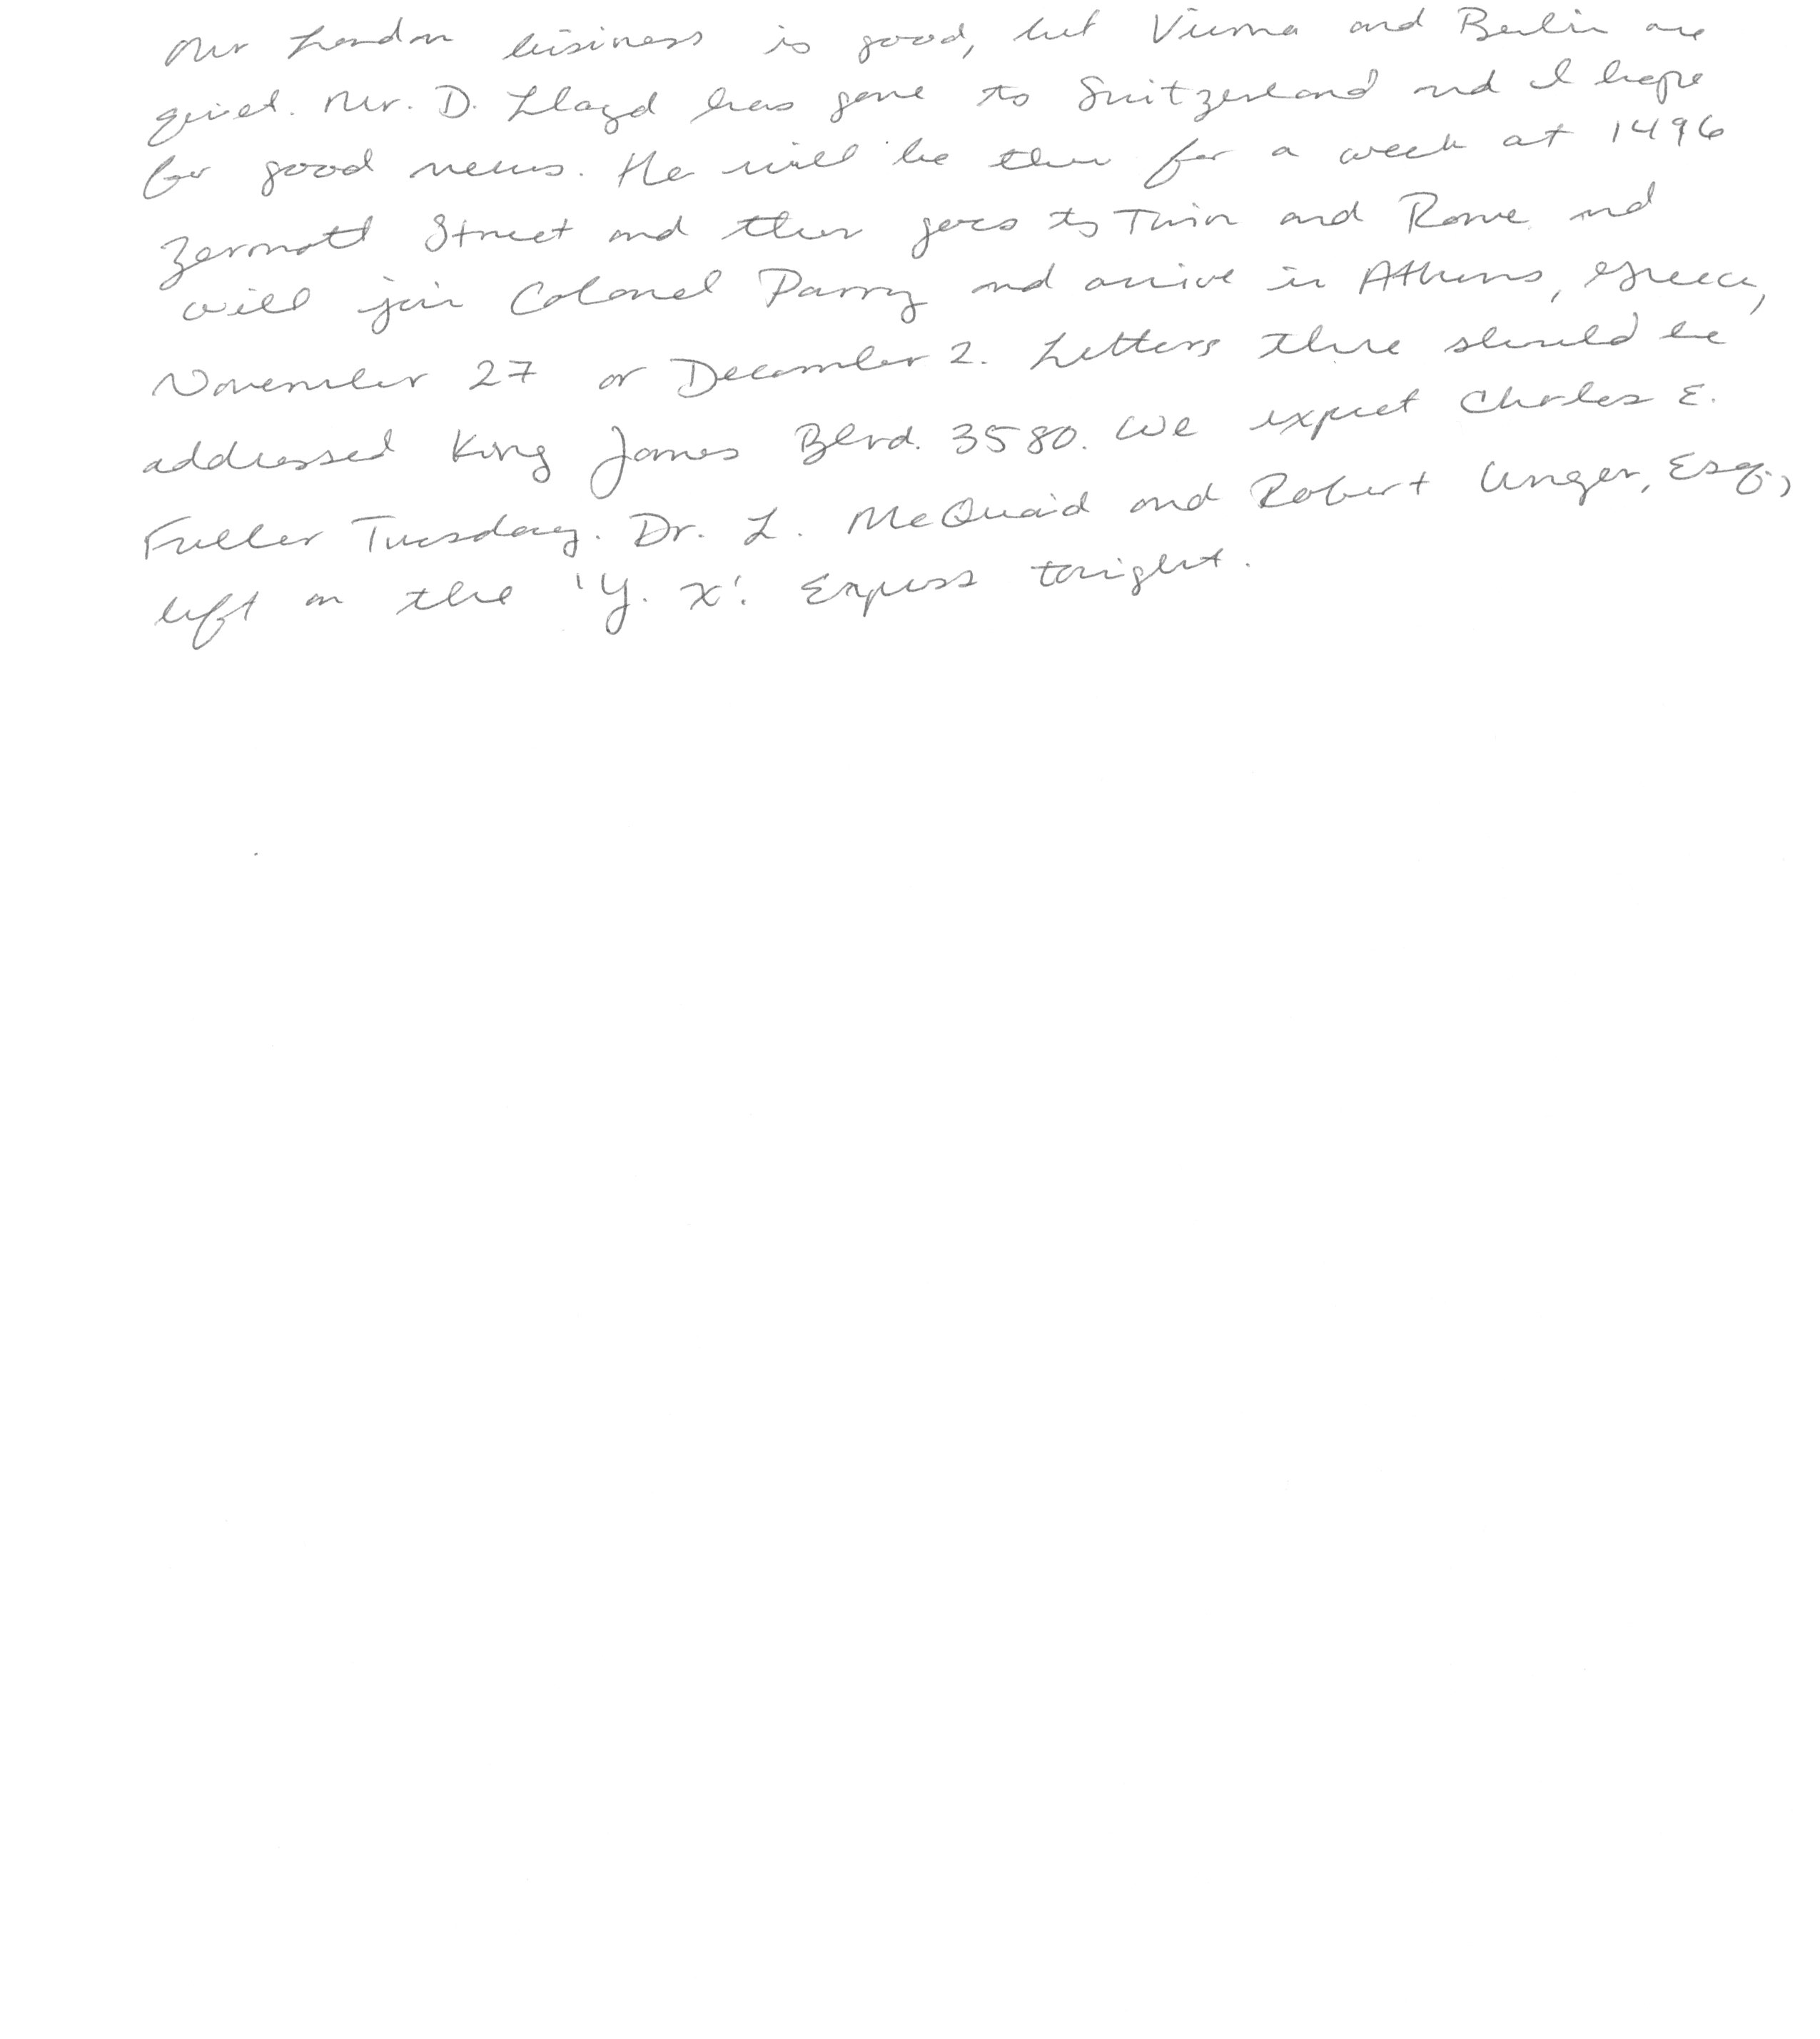 Our London business is good, but Vienna and Berlin are
quiet. Mr. D. Lloyd has gone to Switzerland and I hope
for good news. He will be there for a week at 1496
Zermott Street and then goes to Turin and Rome and
will join Colonel Parry and arrive in Athens, Greece,
November 27 or December 2. Letters there should be
addressed King James Blvd. 3580. We expect Charles E.
Fuller Tuesday. Dr. L. McQuaid and Robert Unger, Esq.,
left on the 'Y. X.' Express tonight.